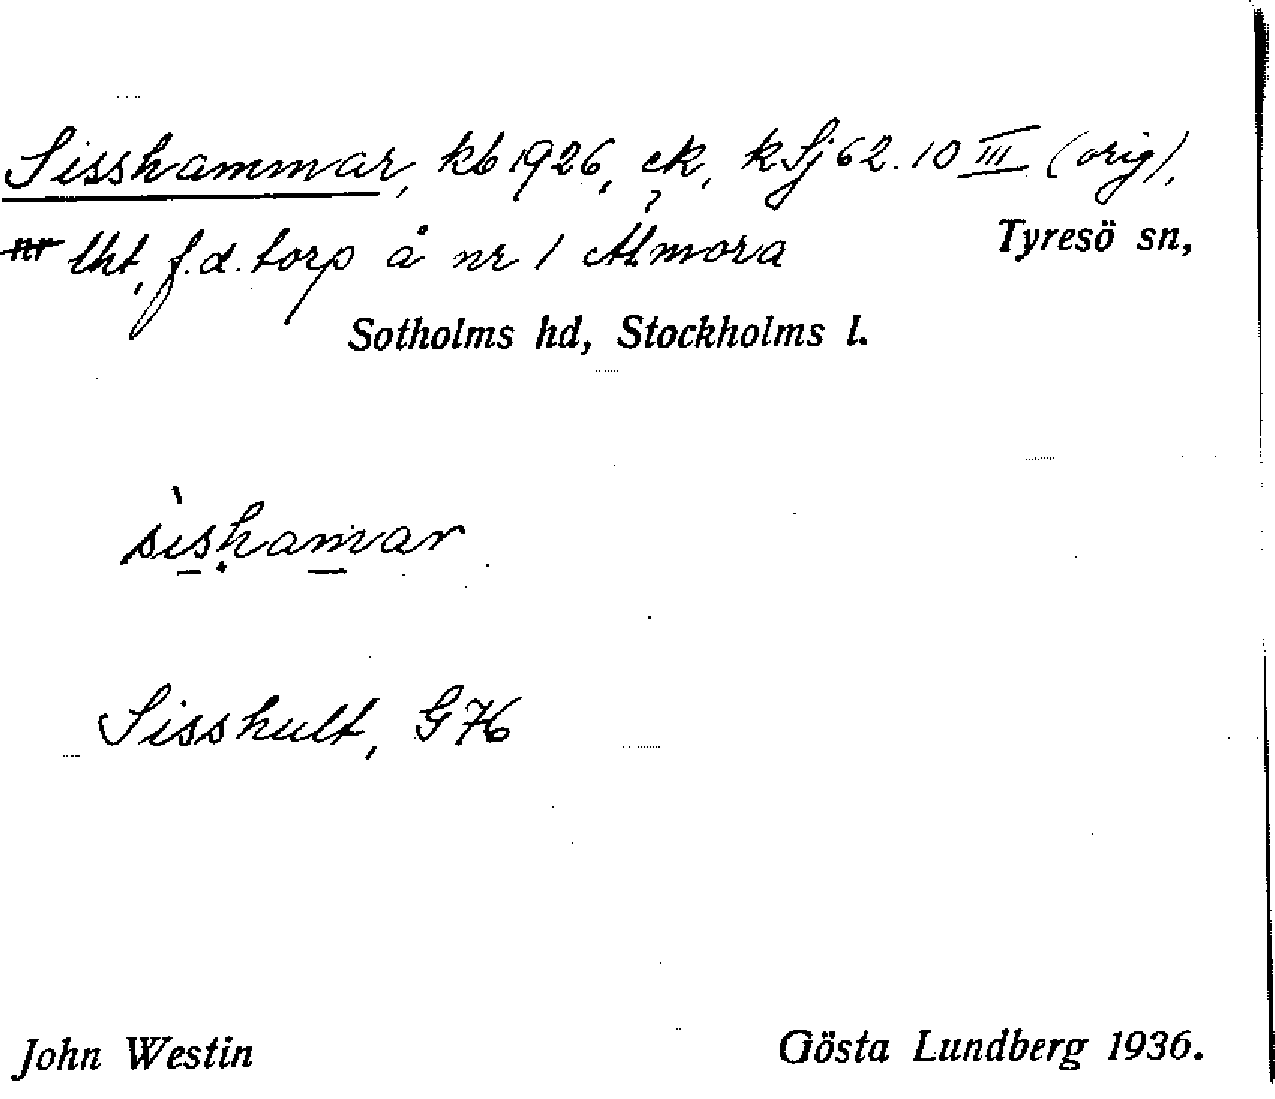 Sisshammar, kb 1926, ek, k Sj 62. 10 III (orig),
nr lht, f.d. torp å nr 1 Almora Tyresö sn,
Sotholms hd, Stockholms l.
sìshamar
Sisshult, GK
John Westin Gösta Lundberg 1936.